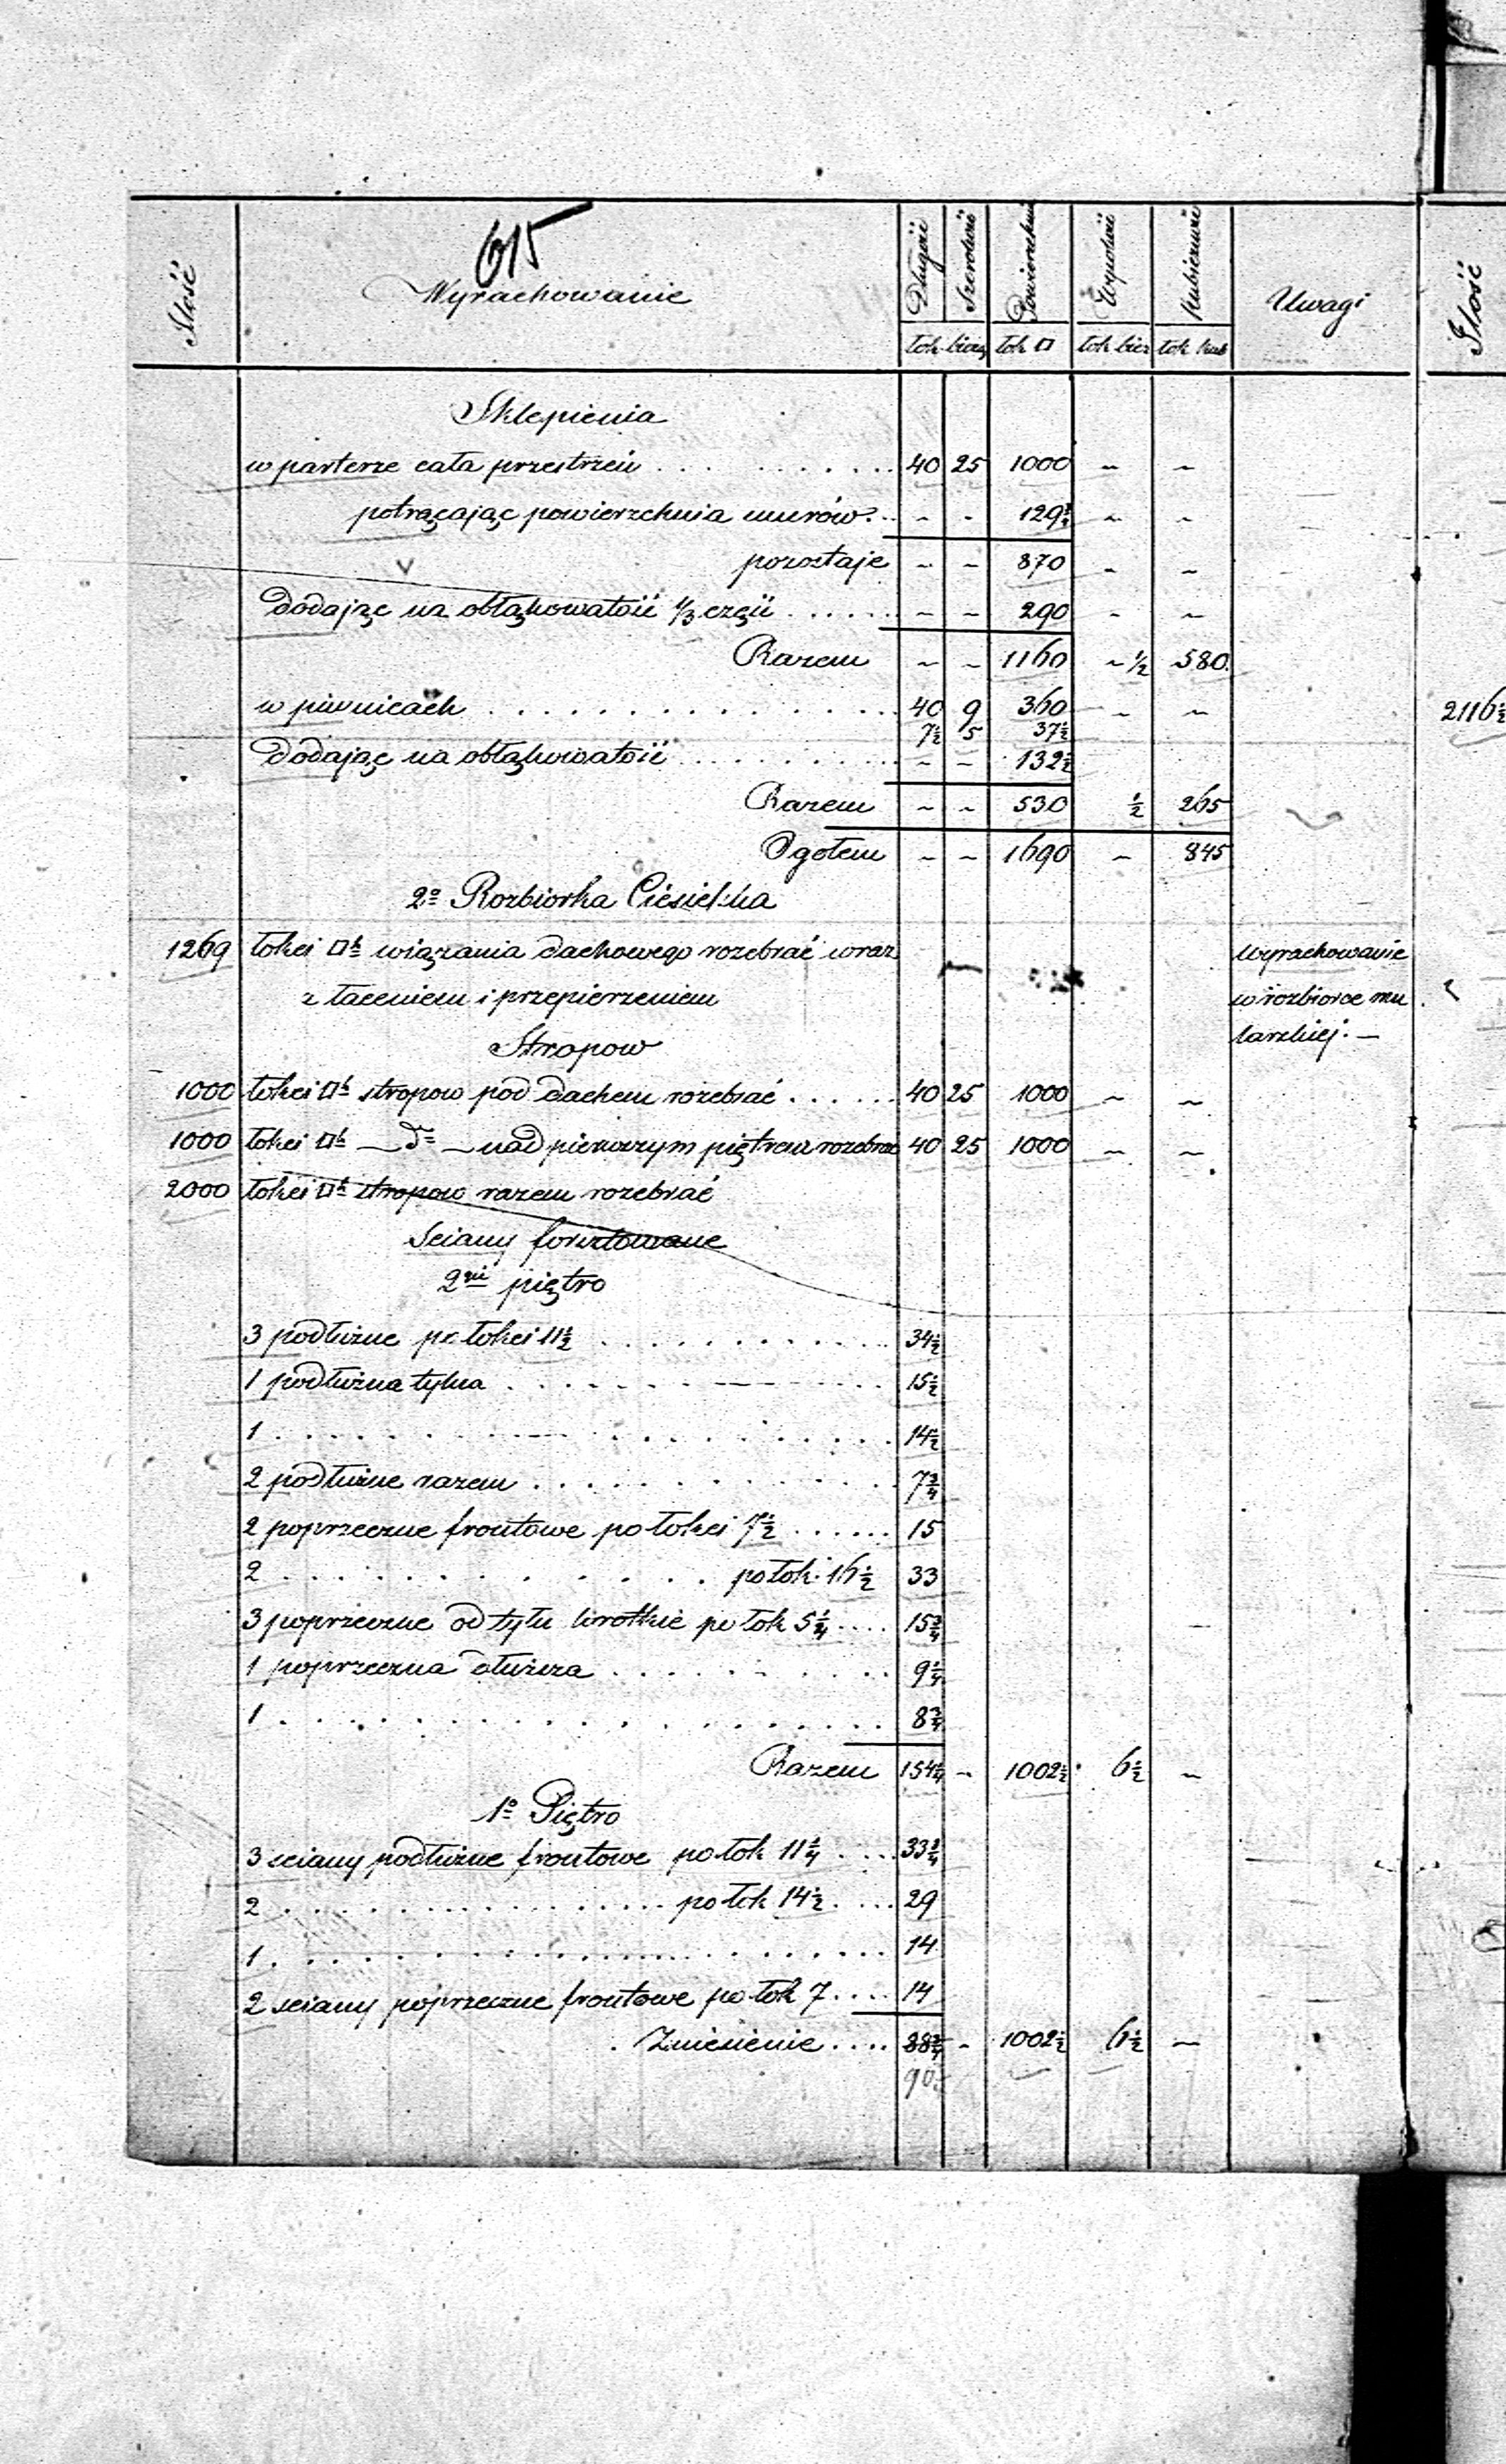 615
Ilość Wyrachowanie Długość Szerokość Powierzchnia Wysokość Kubiczność Uwagi Ilość
łok. bież łok □ łok bież łok kub
Sklepienia
w parterze cała przestrzeń . . . . . . . . . . 40 25 1000 ~ ~
potrącając powierzchnia murów . . - - 129½ ~ ~
pozostaje ~ ~ 870 ~ ~
dodając na obłąkowatość ⅓ części . . . . . . ~ ~ 290 - ~
Razem ~ ~ 1160 ~ ½ 580.
w piwnicach . . . . . . . . . . . . . . . 40 9 360 ~ ~ 2116½
7½ 5 37½
Dodając na obłąkowatość . . . . . . . . . . ~ ~ 132½
Razem ~ ~ 530 ½ 265
Ogołem ~ ~ 1690 ~ 845
2o Rozbiorka Ciesielska
1269 łokci □h wiązania dachowego rozebrać wraz wyrachowanie
z łaceniem i przepierzeniem w rozbiorce mu
Stropow larskiej. —
1000 łokci □h stropow pod dachem rozebrać . . . . . . 40 25 1000 ~ ~
1000 łokci □h — do — nad pierwszym piętrem rozebrać 40 25 1000 ~ ~
2000 łokci □h stropow razem rozebrać
Sciany forsztowane
2gie piętro
3 podłużne po łokci 11½ . . . . . . . . . . . 34½
1 podłużna tylna . . . . . . . . . . . 15½
1 . . . . . . . . . . . . . . . . . . 14½
2 podłużne razem . . . . . . . . . . 7¾
2 poprzeczne frontowe po łokci 7½ . . . . . . 15
2 . . . . . . . . . . . . po łok. 16½ 33
3 poprzeczne od tyłu krotkie po łok 5¼ . . . . 15¾
1 poprzeczna dłuższa . . . . . . . . . 9¼
1 . . . . . . . . . . . . . . . . . . 8¾
Razem 154¼ ~ 1002½ 6½ ~
1o Piętro
3 sciany podłużne frontowe po łok 11¼ . . . . 33¾
2 . . . . . . . . . . . . . . . po łok 14½ . . . . 29
1 . . . . . . . . . . . . . . . . . . . 14
2 sciany poprzeczne frontowe po łok 7 . . . . 14
Zniesienie . . . . 88¾ - 1002½ 6½ ~
90